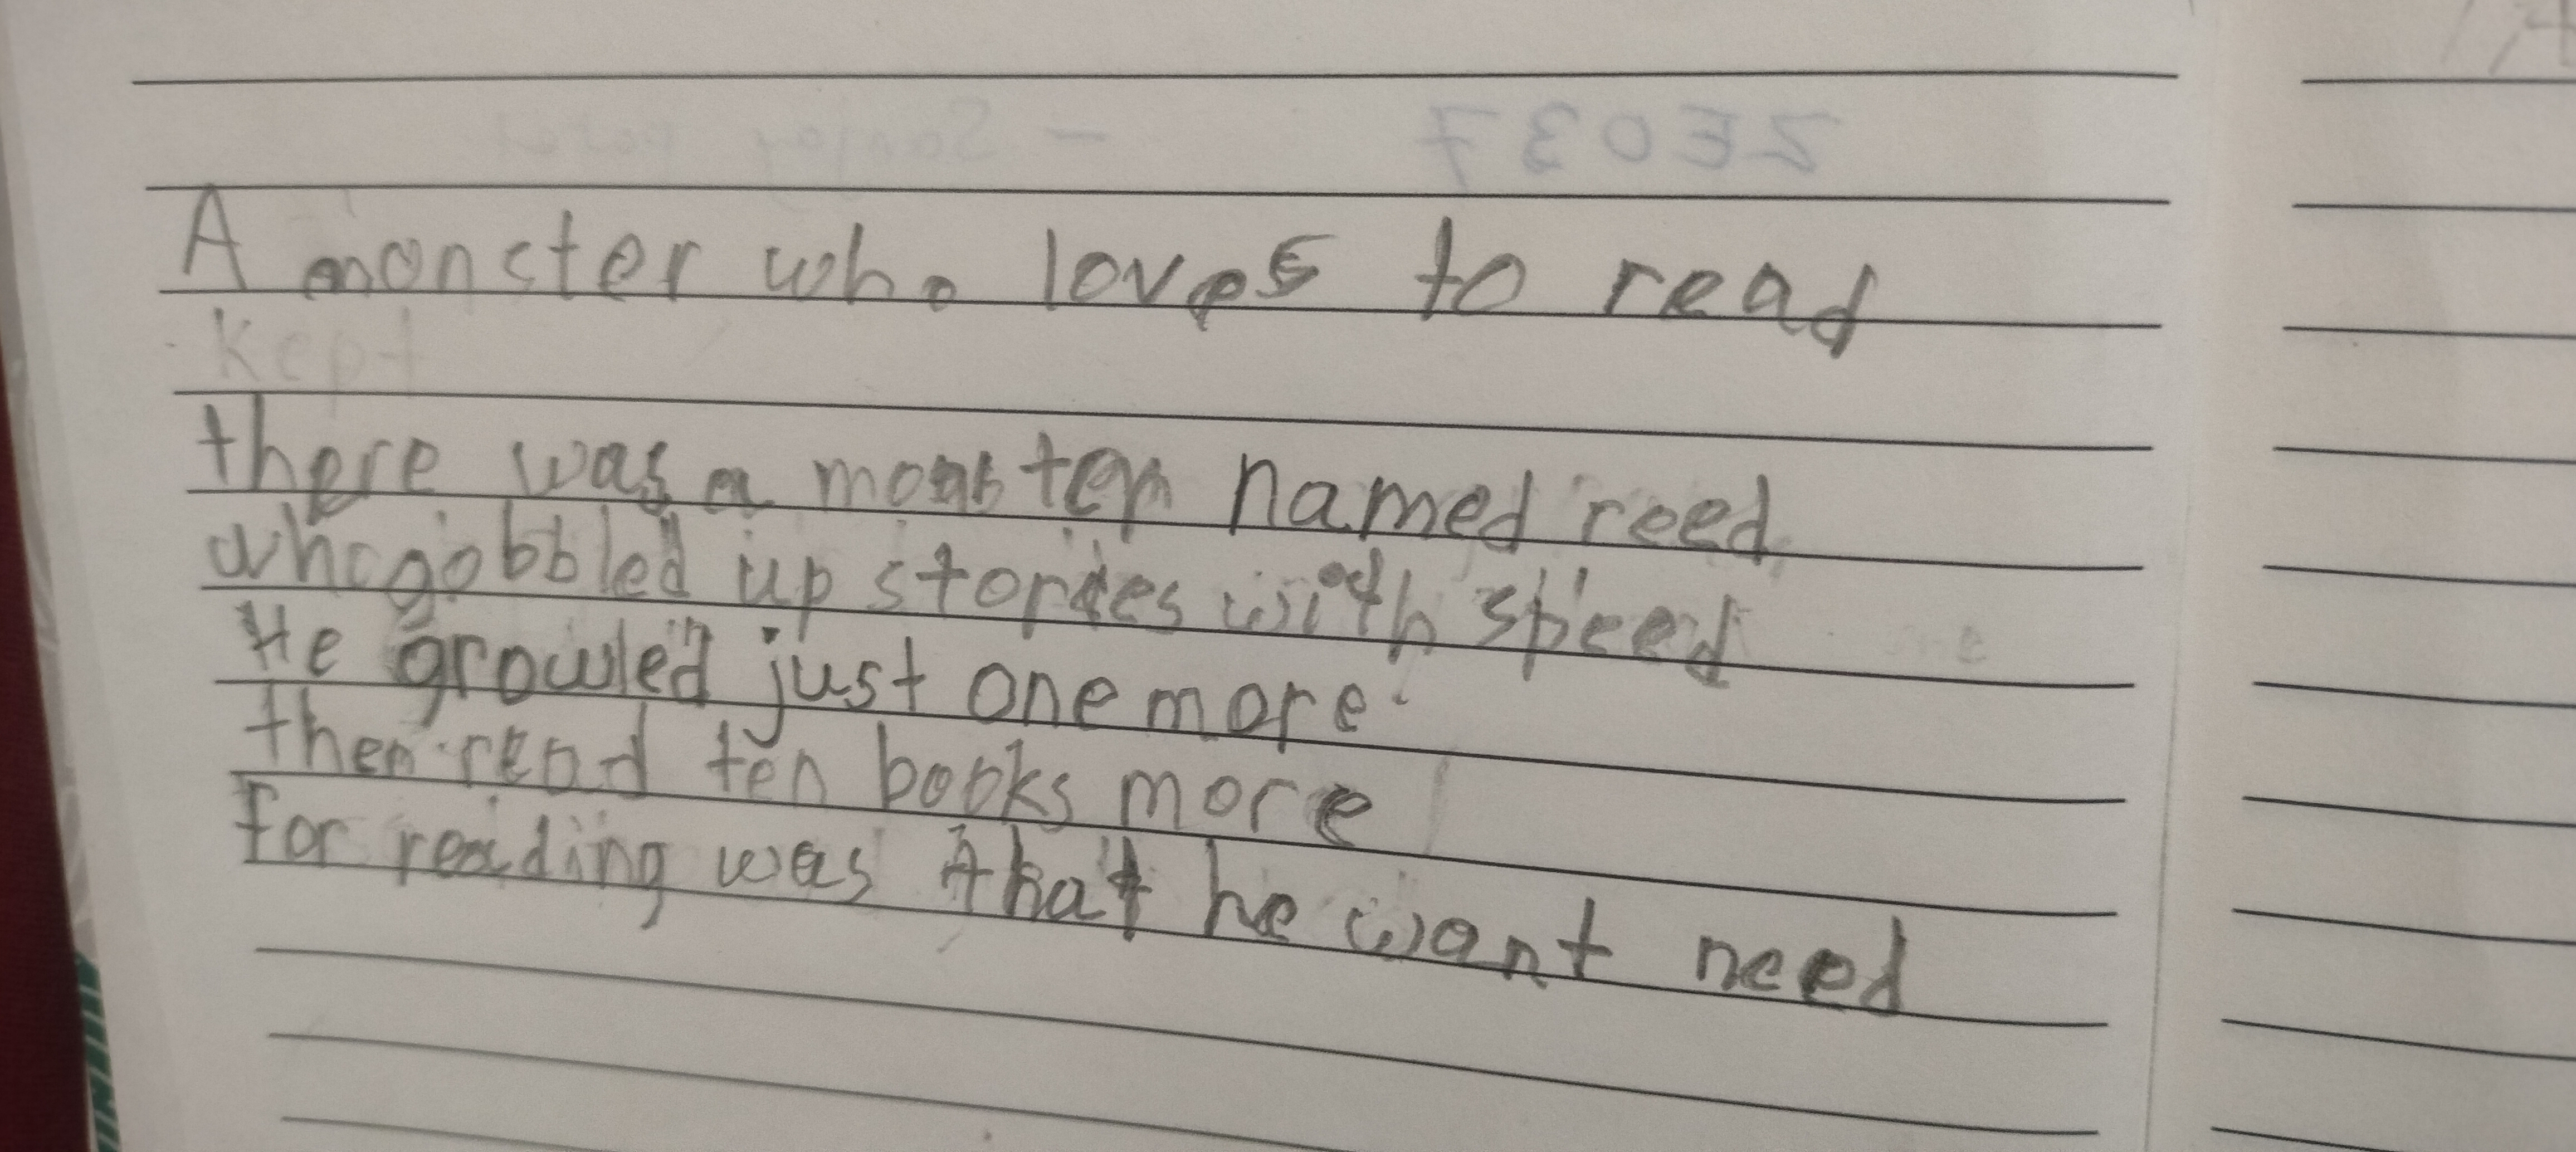 ZE037
A moncter who loves to read
kept
there was a monster named reed
who gobbled up stories with speed
He growled just one more.
then read ten books more
for reading was that he want need